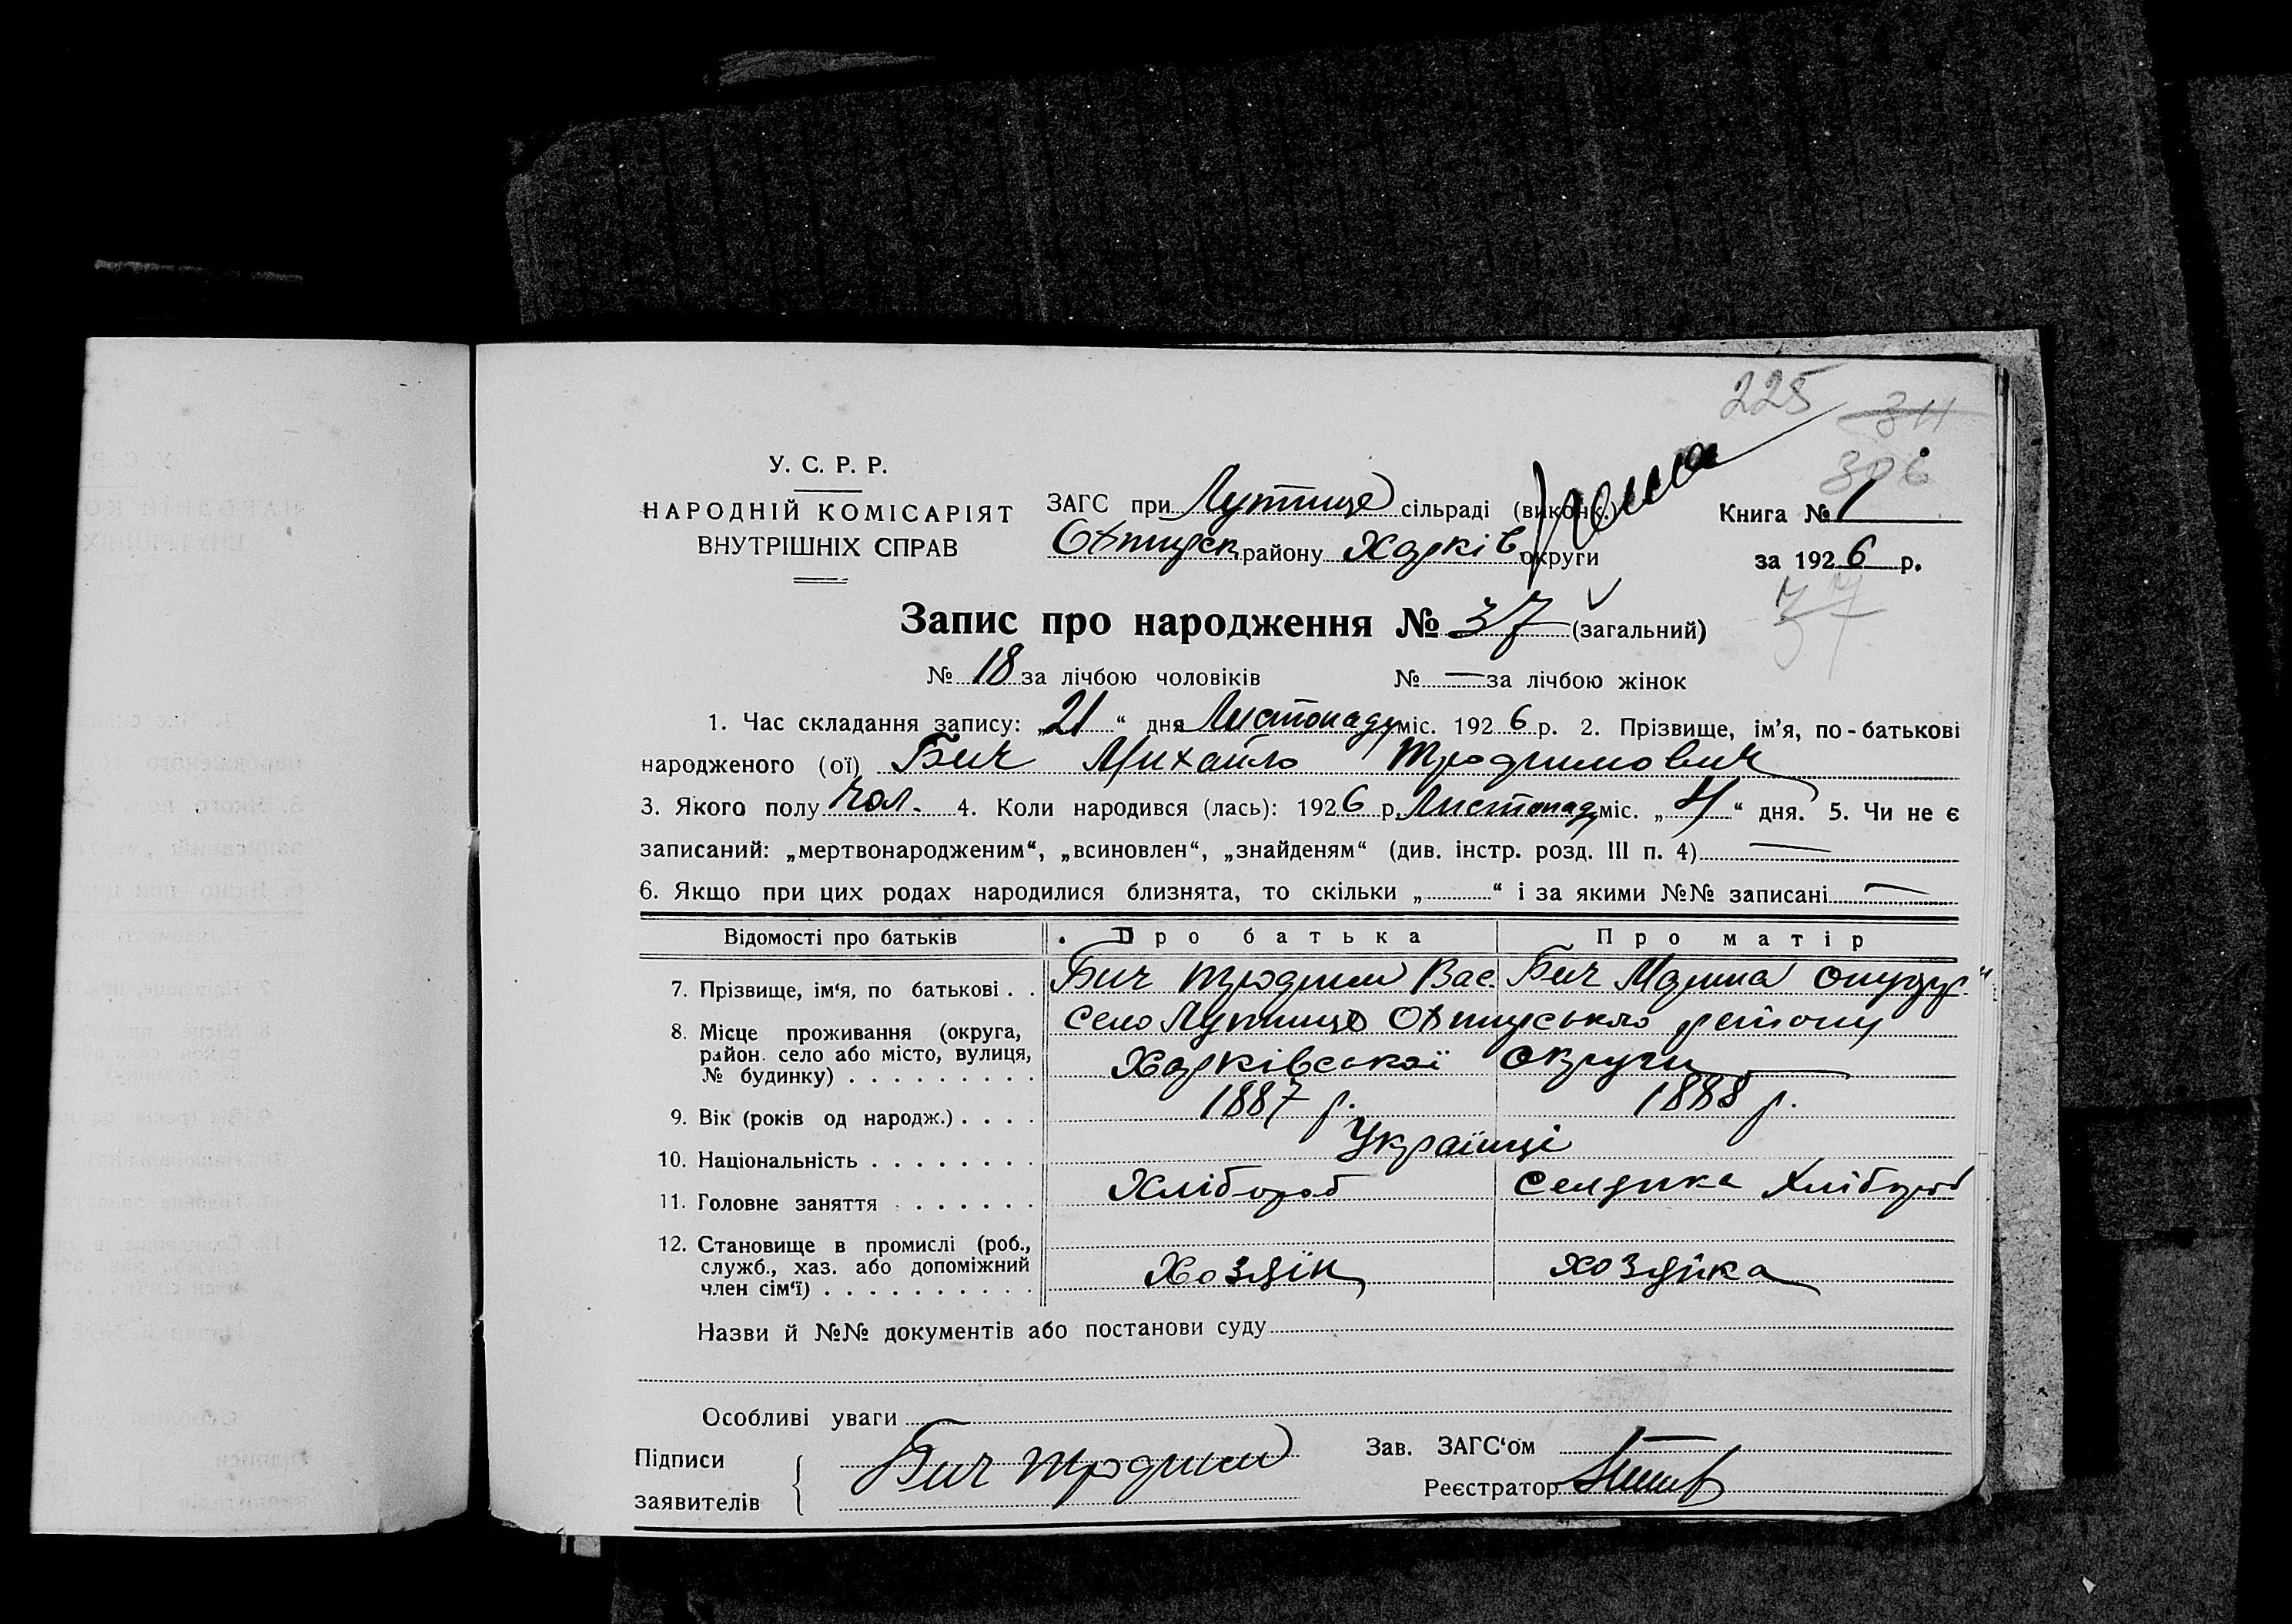 225
311
306
У. С. Р. Р.
НАРОДНІЙ КОМІСАРІЯТ
ВНУТРІШНІХ СПРАВ
ЗАГС при Лутище сільраді (виконк.)
Охтирськ району Харків округи
Книга № 1
за 1926 р.
37
Запис про народження № 37 (загальний)
№ 18 за лічбою чоловіків № — за лічбою жінок
1. Час складання запису: „21“ дня Листопаду міс. 1926 р. 2. Прізвище, ім'я, по-батькові
народженого (ої) Бич Михайло Трофимович
3. Якого полу Чол. 4. Коли народився (лась): 1926 р. Листопаду міс. „ “ дня. 5. Чи не є
записаний: „мертвонародженим“, „всиновлен“, „знайденям“ (див. інстр. розд. III п. 4) —
6. Якщо при цих родах народилися близнята, то скільки „ “ і за якими №№ записані —
Відомості про батьків Про батька Про матір
7. Прізвище, ім'я, по батькові . . Бич Трофим Вас. Бич Марина
8. Місце проживання (округа,
район. село або місто, вулиця,
№ будинку) . . . . . . . . .
село Лутище Охтирського району
Харківської Округи
9. Вік (років од народж.) . . . . 1887 р. 1888 р.
10. Національність . . . . . . . . Українці
11. Головне заняття . . . . . . Хлібороб Селянка Хлібороб
12. Становище в промислі (роб.,
служб., хаз. або допоміжний
член сім'ї) . . . . . . . . . .
Хозяїн хозяйка
Назви й №№ документів або постанови суду
Особливі уваги
Підписи
заявителів
Бич Трофим
Зав. ЗАГС'ом —
Реєстратор